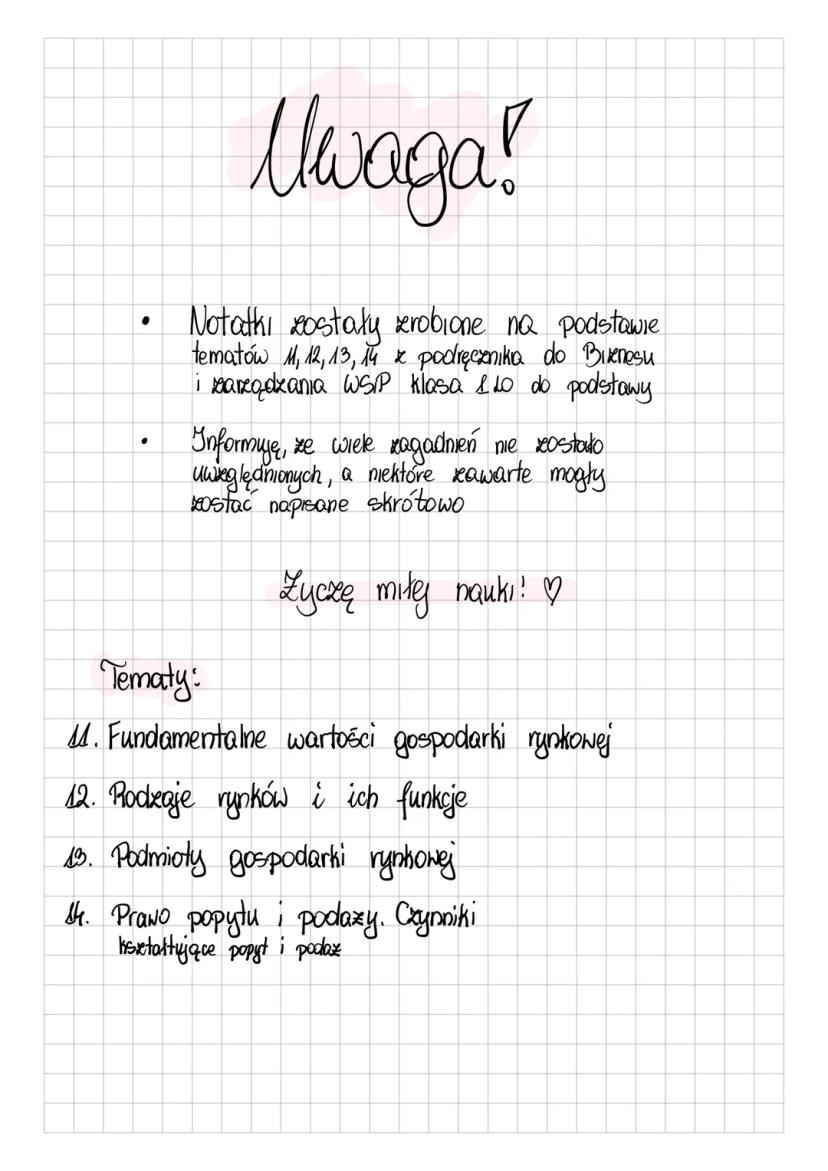 Uwaga!
• Notatki zostały zrobione na podstawie
tematów 11, 12, 13, 14 z podręcznika do Biznesu
i zarządzania WSiP klasa 1 LO do podstawy
• Informuję, ze wiele zagadnień nie zostało
uwzględnionych, a niektóre zawarte mogły
zostać napisane skrótowo
Życzę miłej nauki! ♡
Tematy:
11. Fundamentalne wartości gospodarki rynkowej
12. Rodzaje rynków i ich funkcje
13. Podmioty gospodarki rynkowej
14. Prawo popytu i podazy. Czynniki
kształtujące popyt i podaz